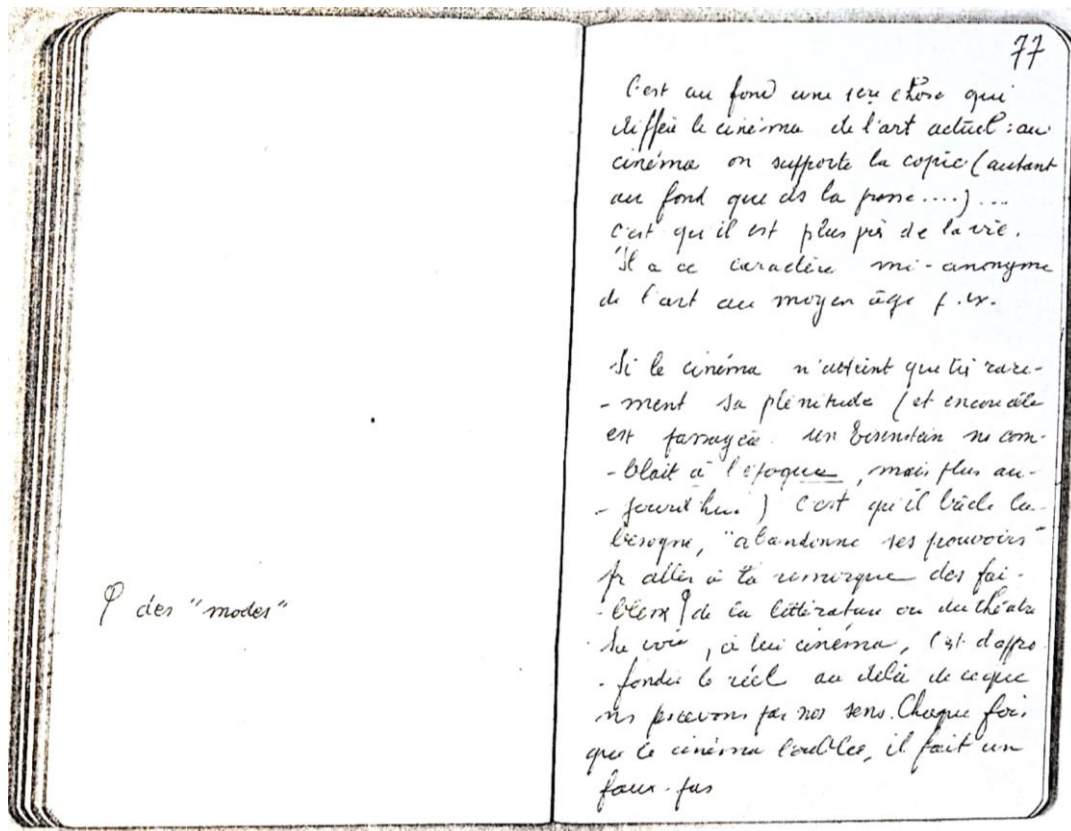 ꟼ des "modes"
77
C'est au fond une seule chose qui
diffère le cinéma de l'art actuel : au
cinéma on supporte la copie (autant
au fond que ds la prose....)...
c'est qu'il est plus près de la vie.
Il a ce caractère mi-anonyme
de l'art au moyen âge p. ex.
Si le cinéma n'atteint que très rare-
- ment sa plénitude (et encore elle
est passagère. un Eisenstein ns com-
- blait à l'époque, mais plus au-
- jourd'hui) c'est qu'il bâcle la
besogne, "abandonne ses pouvoirs"
pr aller à la remorque des fai-
- blesses de la littérature ou du théâtre
Sa voie, à lui cinéma, c'est d'appro
- fondir le réel au delà de ce que
ns percevons par nos sens. Chaque fois
que le cinéma l'oublie, il fait un
faux-pas